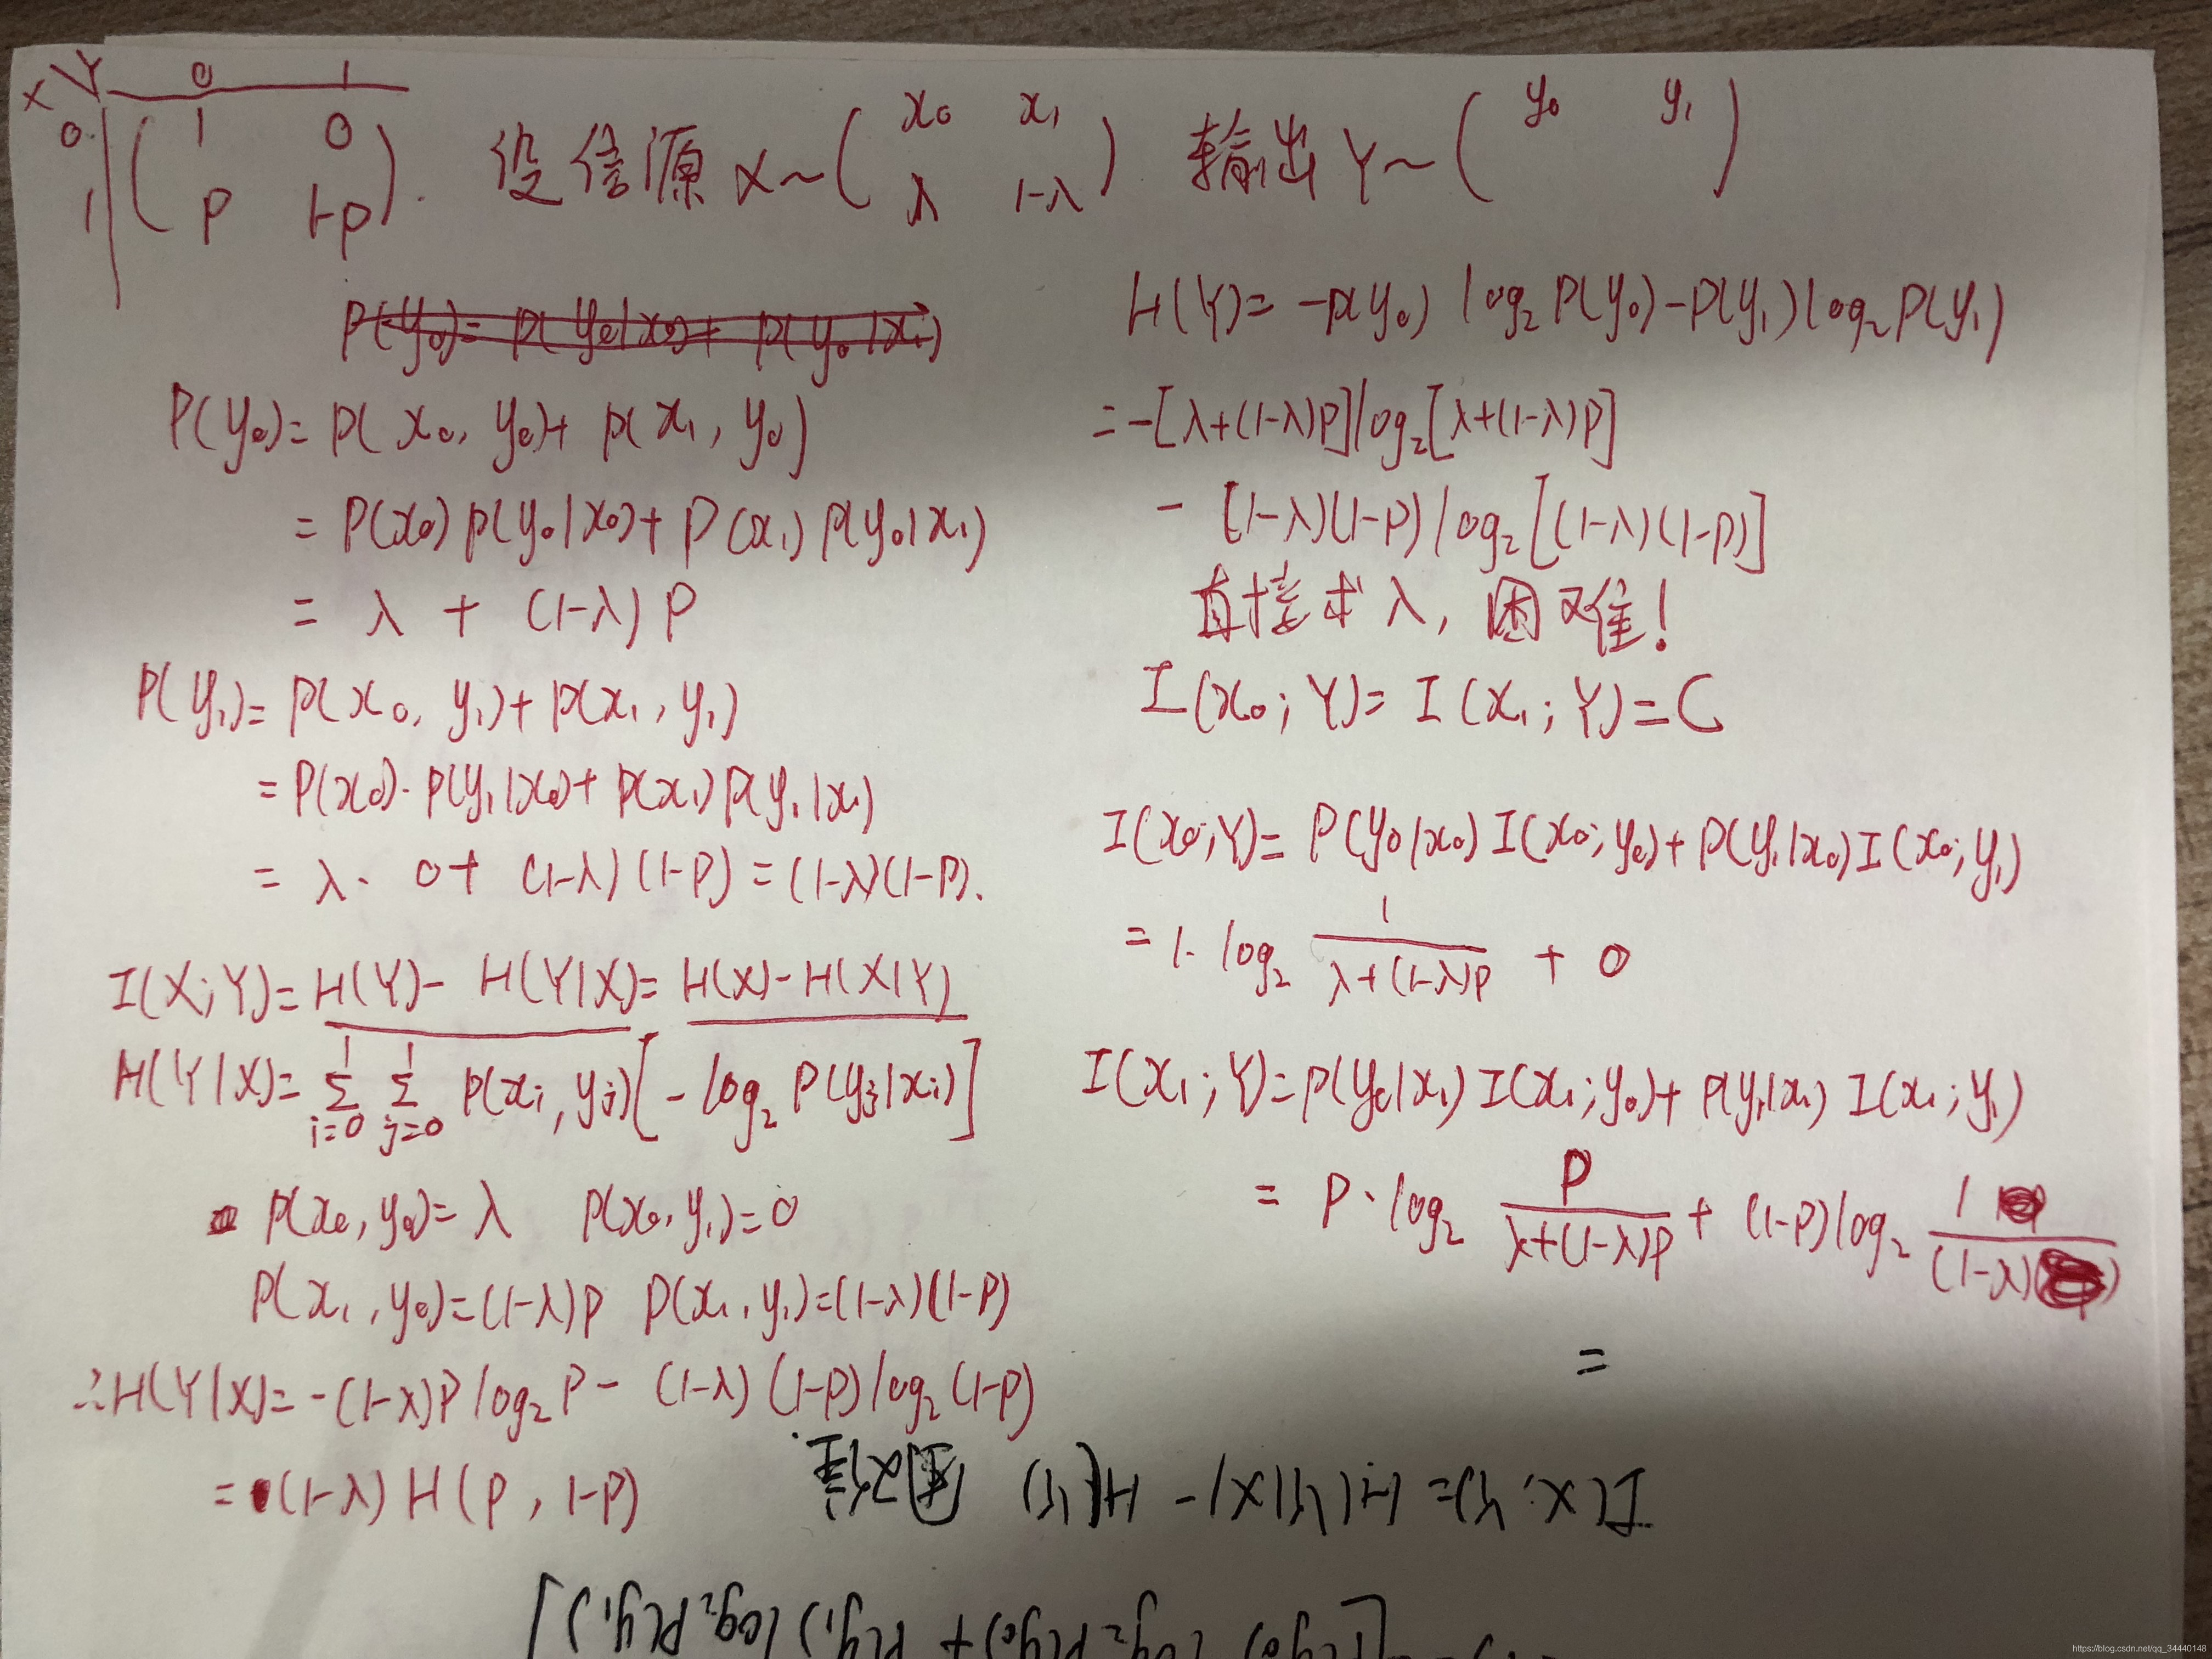 X\Y 0 1
0 ( 1 0
1 p 1-p ). 设信源 X~( x₀ x₁ 输出 Y~( y₀ y₁ )
λ 1-λ )
P(y₀)= p(y₀|x₀)+ p(y₀|x₁)
P(y₀)= p(x₀, y₀)+ p(x₁, y₀)
= P(x₀) p(y₀|x₀)+ P(x₁) p(y₀|x₁)
= λ + (1-λ) P
P(y₁)= p(x₀, y₁)+ p(x₁, y₁)
= P(x₀)· p(y₁|x₀)+ p(x₁) p(y₁|x₁)
= λ· 0+ (1-λ)(1-P)=(1-λ)(1-P).
I(X;Y)= H(Y)- H(Y|X)= H(X)-H(X|Y)
H(Y|X)= Σ_{i=0}^{1} Σ_{j=0}^{1} P(xᵢ, yⱼ)[-log₂ P(yⱼ|xᵢ)]
P(x₀, y₀)= λ P(x₀, y₁)=0
P(x₁, y₀)=(1-λ)p P(x₁, y₁)=(1-λ)(1-P)
∴H(Y|X)= -(1-λ)P log₂ P - (1-λ)(1-P) log₂ (1-P)
= (1-λ) H(p, 1-p)
H(Y)= -p(y₀) log₂ P(y₀)-P(y₁) log₂ P(y₁)
= -[λ+(1-λ)P] log₂[λ+(1-λ)P]
- [1-λ)(1-P) log₂[(1-λ)(1-P)]
直接求λ, 困难!
I(x₀; Y)= I(x₁; Y)=C
I(x₀;Y)= P(y₀|x₀) I(x₀; y₀)+ P(y₁|x₀) I(x₀; y₁)
= 1· log₂ 1/(λ+(1-λ)P) + 0
I(x₁; Y)= p(y₀|x₁) I(x₁; y₀)+ p(y₁|x₁) I(x₁; y₁)
= P· log₂ P/(λ+(1-λ)P) + (1-P) log₂ 1/(1-λ)
=
I(X;Y)= H(Y|X)- H(Y) 困难.
log₂P(y₀)+ P(y₁) log₂P(y₁)]
https://blog.csdn.net/qq_34440148